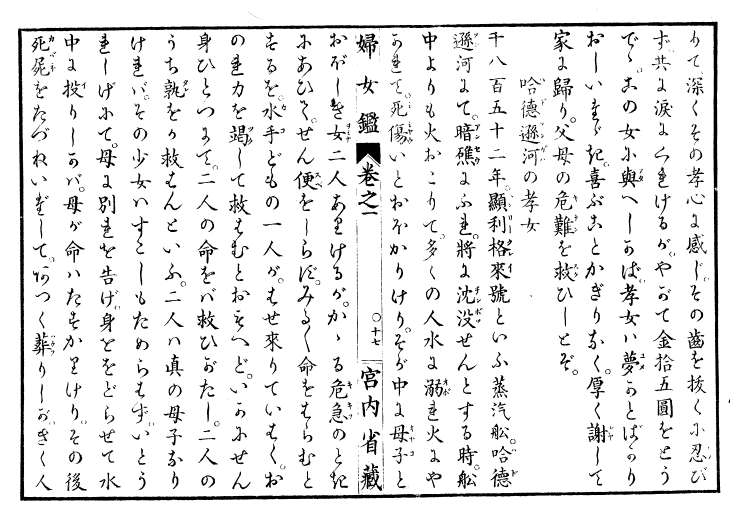 りて深くその孝心に感じ。その齒を抜くに忍び
ず。共に涙にくれけるが。やがて金拾五圓をとう
で。この女に與へしかば。孝女ハ夢かとばかり
おしいたゞき。喜ぶことかぎりなく。厚く謝して
家に歸り。父母の危難を救ひしとぞ。
哈德遜河の孝女
千八百五十二年。顯利格來號といふ蒸汽舩。哈德
遜河にて。暗礁にふれ。將に沈没せんとする時。舩
中よりも火おこりて。多くの人水に溺れ火にや
かれて。死傷いとおほかりけり。そが中に母子と
婦女鑑 巻之一 〇十七 宮内省藏
おぼしき女二人ありけるが。かゝる危急のとき
にあひて。せん便をしらず。みる〳〵命をはらむと
するを。水手どもの一人が。はせ來りていはく。お
のれ力を竭して救はむとおもへど。いかにせん
身ひとつにて。二人の命をバ救ひがたし。二人の
うち孰をか救はんといふ。二人ハ真の母子なり
けれバ。その少女ハすこしもためらはず。いとう
れしげにて。母に別れを告げ。身ををどらせて水
中に投りしかバ。母が命ハたすかりけり。その後
死屍をたづねいだして。あつく葬りしがきく人